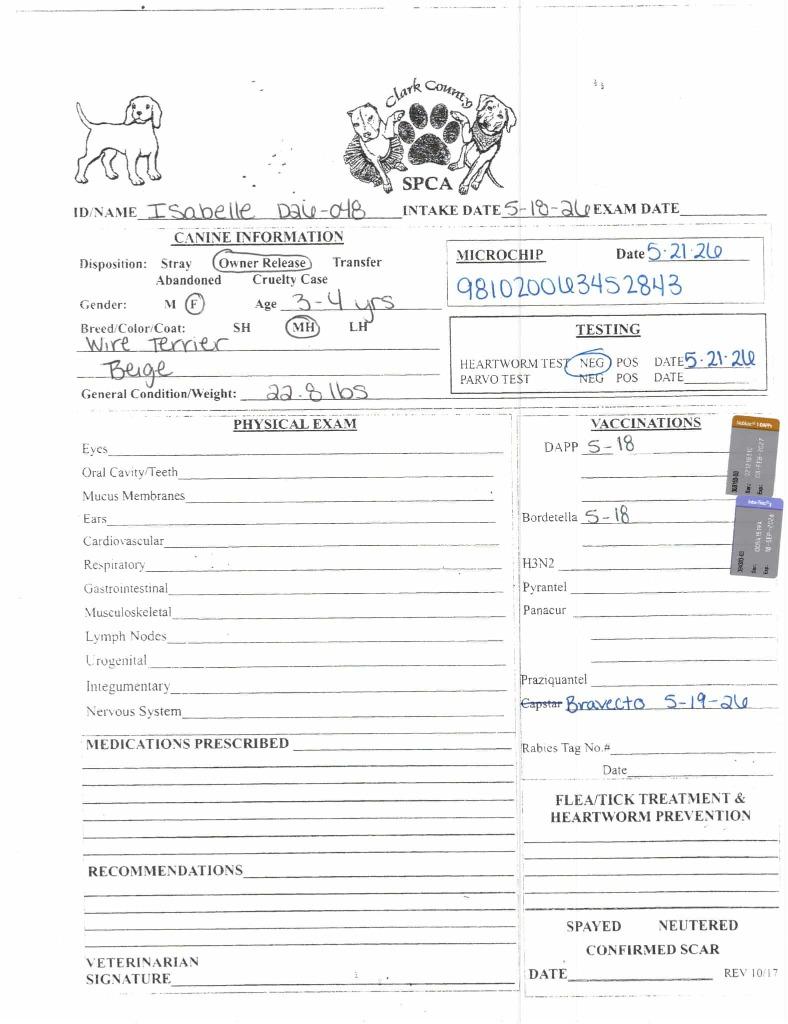 Clark County
SPCA
ID/NAME Isabelle D26-048 INTAKE DATE 5-18-26 EXAM DATE
CANINE INFORMATION
Disposition: Stray Owner Release Transfer
Abandoned Cruelty Case
Gender: M F Age 3-4 yrs
Breed/Color/Coat: SH MH LH
Wire Terrier
Beige
General Condition/Weight: 22.8 lbs
MICROCHIP Date 5·21·26
981020063452843
TESTING
HEARTWORM TEST NEG POS DATE 5·21·26
PARVO TEST NEG POS DATE
PHYSICAL EXAM
Eyes
Oral Cavity/Teeth
Mucus Membranes
Ears
Cardiovascular
Respiratory
Gastrointestinal
Musculoskeletal
Lymph Nodes
Urogenital
Integumentary
Nervous System
MEDICATIONS PRESCRIBED
RECOMMENDATIONS
VETERINARIAN
SIGNATURE
VACCINATIONS
DAPP 5-18
Bordetella 5-18
H3N2
Pyrantel
Panacur
Praziquantel
Capstar Bravecto 5-19-26
Rabies Tag No.#
Date
FLEA/TICK TREATMENT &
HEARTWORM PREVENTION
SPAYED NEUTERED
CONFIRMED SCAR
DATE REV 10/17